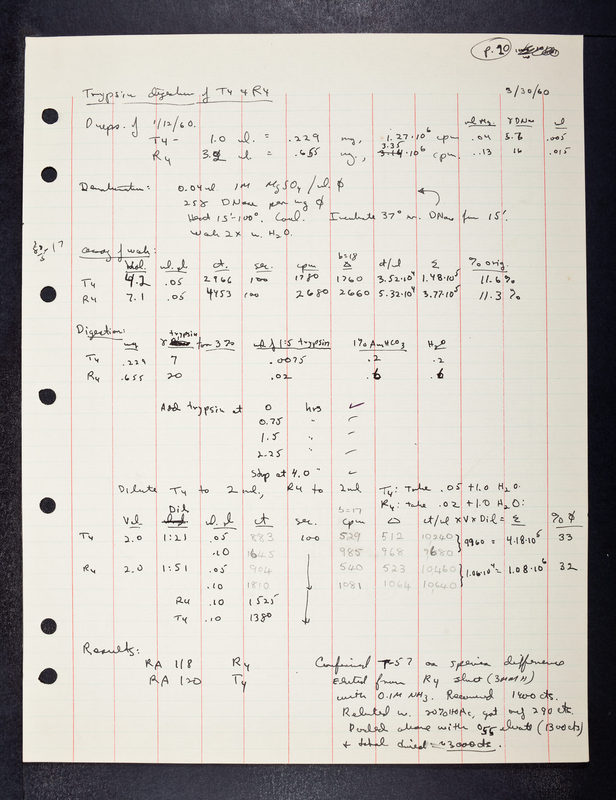 p. 20
Trypsin digestion of T4 & R4 3/30/60
D reps. of 1/12/60. ml Mg γ DNase ml
T4 - 1.0 ml. = .229 mg, 1.27·10⁶ cpm .04 5.7 .005
R4 3.2 ml. = .655 mg., 3.35 3.14·10⁶ cpm. .13 16 .015
Denaturation: 0.04 ml 1M MgSO4 / ml. φ
25γ DNase per mg φ
Heat 15'-100°. Cool. Incubate 37° w. DNase for 15'.
Wash 2x w. H2O.
assay of wash: b=18
Vol. ml. pl ct. sec. cpm Δ ct/ml Σ % orig.
T4 4.2 .05 2966 100 1780 1760 3.52·10⁴ 1.48·10⁵ 11.6%
R4 7.1 .05 4453 100 2680 2660 5.32·10⁴ 3.77·10⁵ 11.3%
Digestion:
mg γ trypsin for 3% ml of 1:5 trypsin 1% AmHCO3 H2O
T4 .229 7 .0075 .2 .2
R4 .655 20 .02 .6 .6
Add trypsin at 0 hrs ✓
0.75 " ✓
1.5 " ✓
2.25 " ✓
Stop at 4.0 " ✓
Dilute T4 to 2 ml, R4 to 2 ml T4: Take .05 + 1.0 H2O.
R4: take .02 + 1.0 H2O:
Dil b=17
Vol ml. pl ct sec. cpm Δ ct/ml x V x Dil = Σ % φ
T4 2.0 1:21 .05 883 100 529 512 10240 } 9960 = 4.18·10⁵ 33
.10 1645 985 968 9680
R4 2.0 1:51 .05 904 540 523 10460 } 1.06·10⁴ = 1.08·10⁶ 32
.10 1810 1081 1064 10640
R4 .10 1525
T4 .10 1380
Results:
RA 118 R4 Confirmed T-57 as species difference
RA 120 T4 Eluted from R4 sheet (3MMH)
with 0.1M NH3. Recovered 1400 cts.
Reeluted w. 20% HOAc, got only 290 cts.
Pooled above with eluate (1300 cts)
& total dried = ~3000 cts.